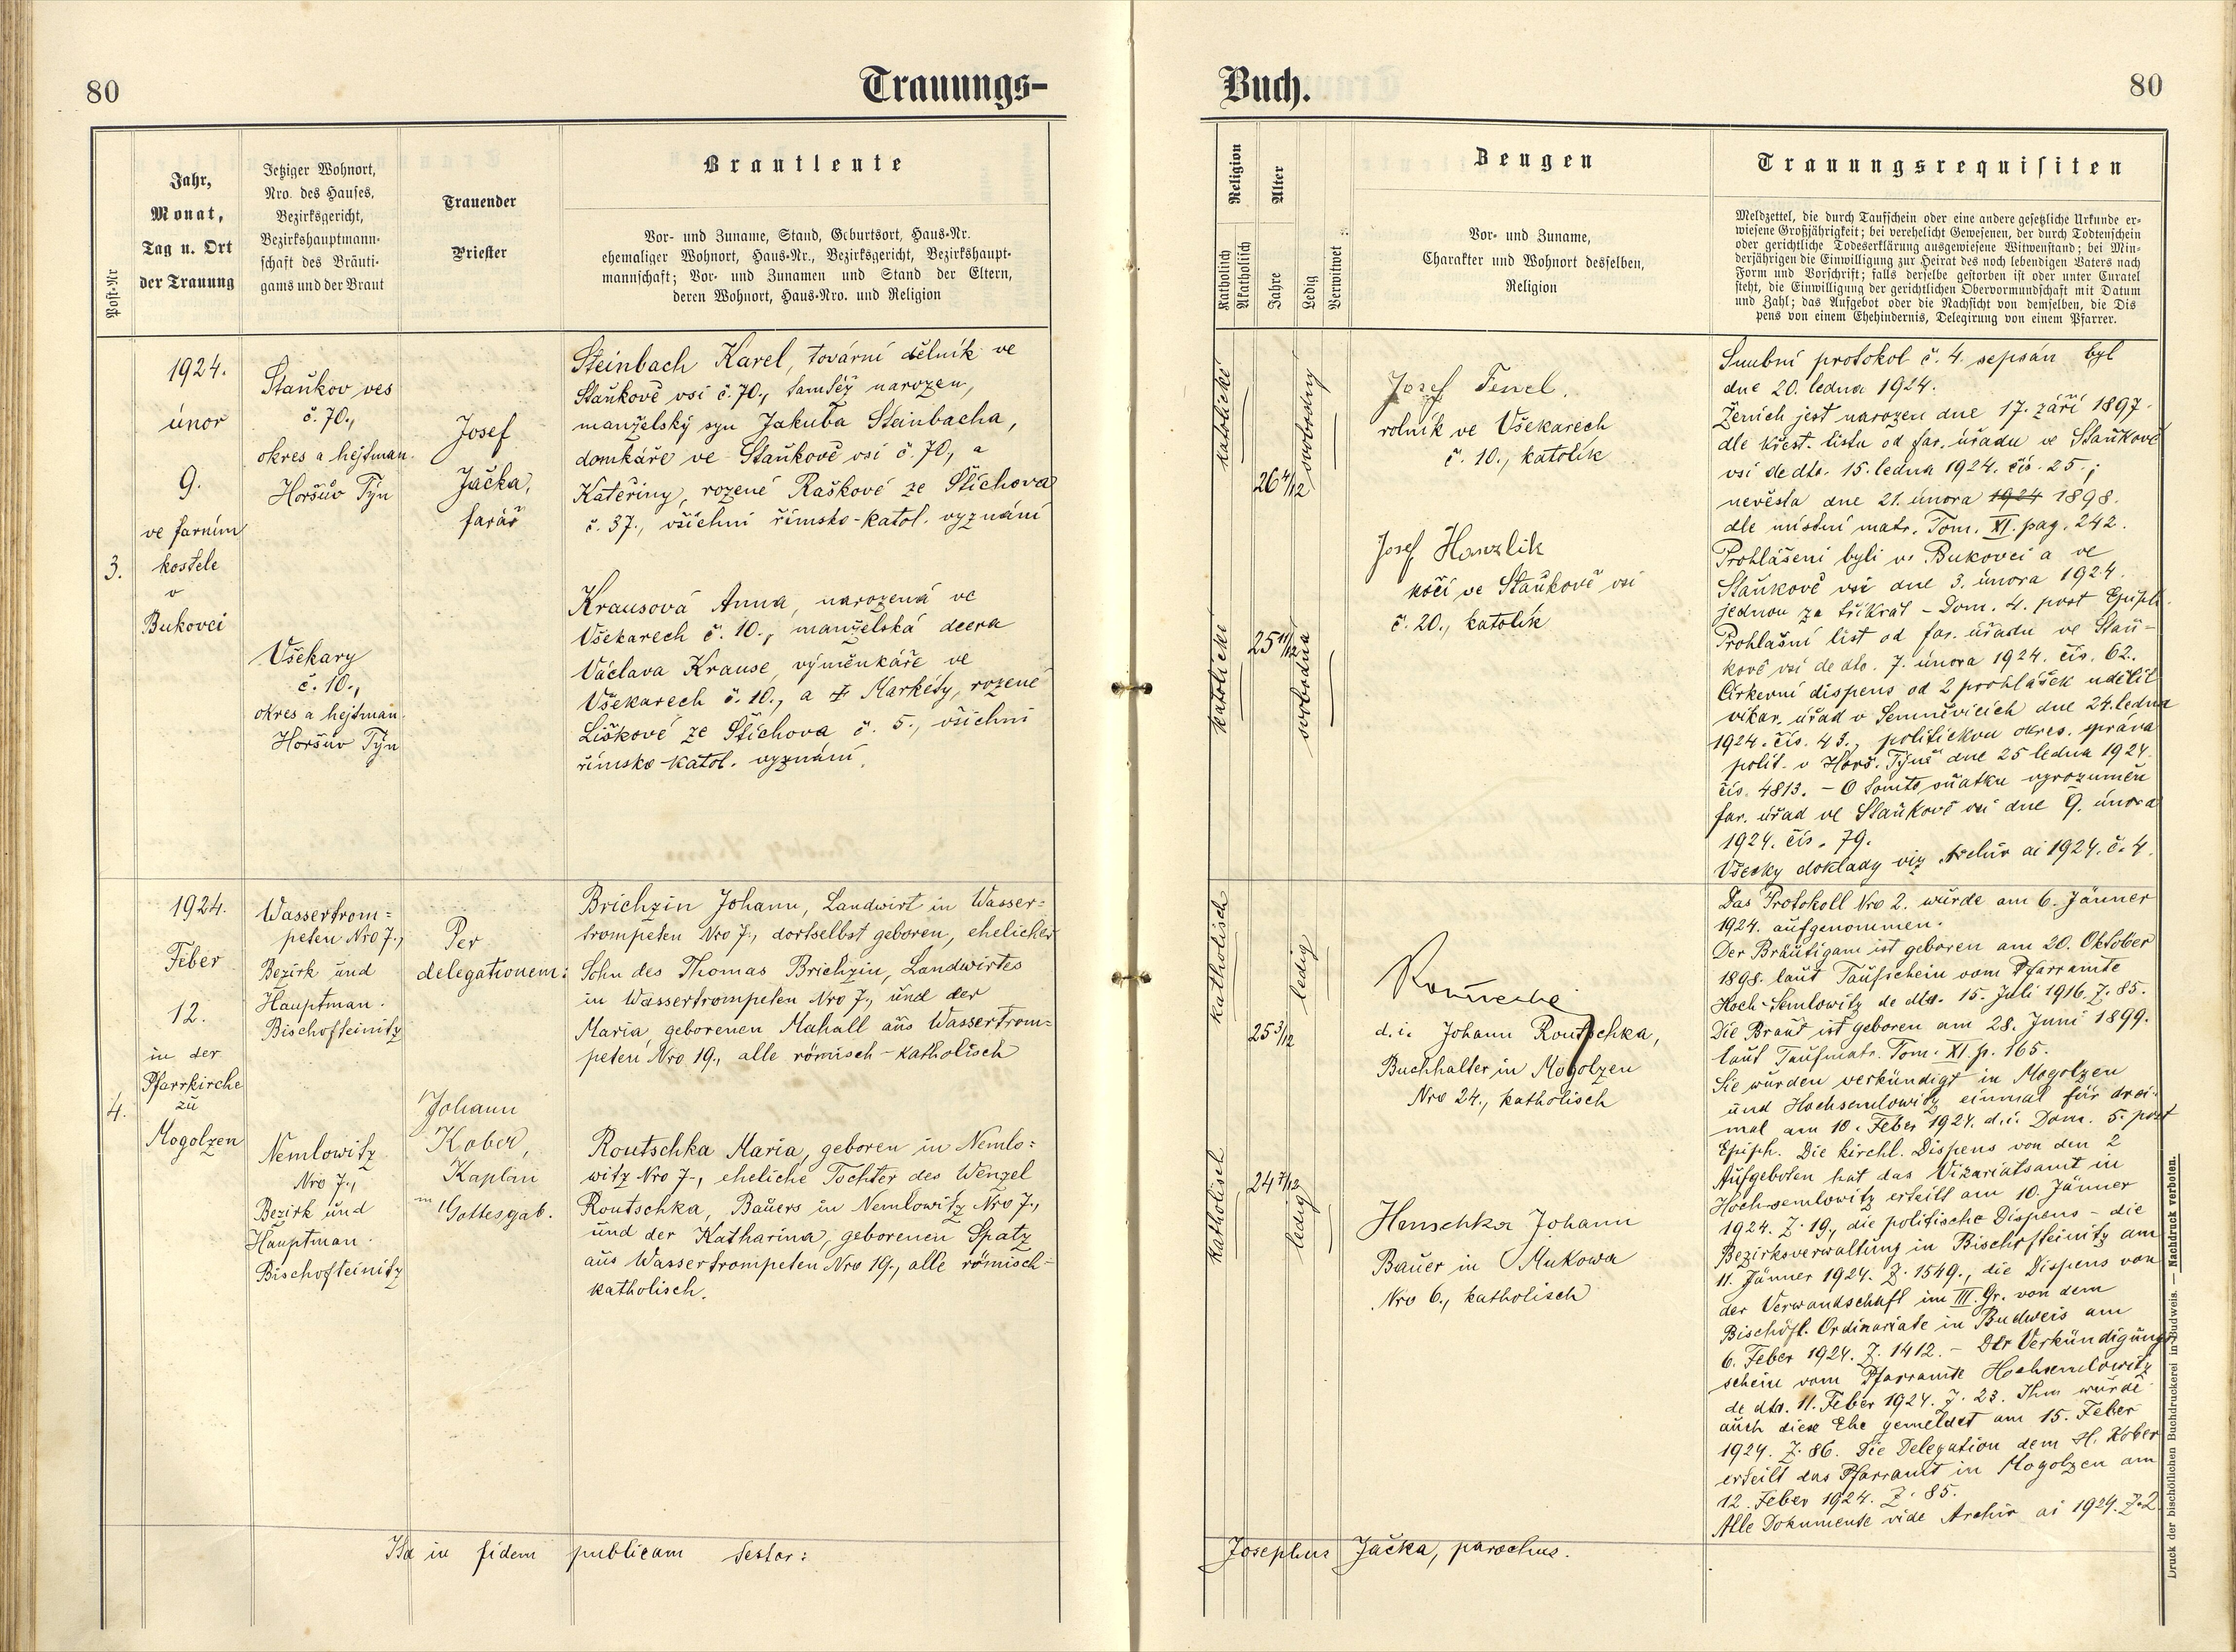 80
Trauungs-
Post-Nr
Jahr,
Monat,
Tag u. Ort
der Trauung
Jetziger Wohnort,
Nro. des Hauses,
Bezirksgericht,
Bezirkshauptmann-
schaft des Bräuti-
gams und der Braut
Trauender
Priester
Brautleute
Vor- und Zuname, Stand, Geburtsort, Haus-Nr.
ehemaliger Wohnort, Haus-Nr., Bezirksgericht, Bezirkshaupt-
mannschaft; Vor- und Zunamen und Stand der Eltern,
deren Wohnort, Haus-Nro. und Religion
3.
1924.
únor
9.
ve farním
kostele
v
Bukovci
Staňkov ves
č. 70.,
okres a hejtman.
Horšův Týn
Všekary
č. 10.,
okres a hejtman.
Horšův Týn
Josef
Jačka,
farář
Steinbach Karel, tovární dělník ve
Staňkově vsi č. 70., tamtéž narozen,
manželský syn Jakuba Steinbacha,
domkáře ve Staňkově vsi č. 70., a
Kateřiny, rozené Raškové ze Štichova
č. 37., všichni římsko-katol. vyznání
Krausová Anna, narozená ve
Všekarech č. 10., manželská dcera
Václava Krause, výměnkáře ve
Všekarech č. 10., a ‡ Markéty, rozené
Liškové ze Štichova č. 5., všichni
římsko-katol. vyznání.
4.
1924.
Feber
12.
in der
Pfarrkirche
zu
Mogolzen
Wassertrom=
peten Nro 7.,
Bezirk und
Hauptman.
Bischofteinitz
Nemlowitz
Nro 7.,
Bezirk und
Hauptman.
Bischofteinitz
Per
delegationem:
Johann
Kober,
Kaplan
in Gottesgab.
Brichzin Johann, Landwirt in Wasser=
trompeten Nro 7., dortselbst geboren, ehelicher
Sohn des Thomas Brichzin, Landwirtes
in Wassertrompeten Nro 7., und der
Maria, geborenen Mahall aus Wassertrom=
peten Nro 19., alle römisch-katholisch
Routschka Maria, geboren in Nemlo=
witz Nro 7., eheliche Tochter des Wenzel
Routschka, Bauers in Nemlowitz Nro 7.,
und der Katharina, geborenen Spatz
aus Wassertrompeten Nro 19., alle römisch-
katholisch.
Ita in fidem publicam testor:
Buch.
80
Religion
Katholisch
Akatholisch
Alter
Jahre
Ledig
Verwitwet
Zeugen
Vor- und Zuname,
Charakter und Wohnort desselben,
Religion
Trauungsrequisiten
Meldzettel, die durch Taufschein oder eine andere gesetzliche Urkunde er-
wiesene Großjährigkeit; bei verehelicht Gewesenen, der durch Todtenschein
oder gerichtliche Todeserklärung ausgewiesene Witwenstand; bei Min-
derjährigen die Einwilligung zur Heirat des noch lebendigen Vaters nach
Form und Vorschrift; falls derselbe gestorben ist oder unter Curatel
steht, die Einwilligung der gerichtlichen Obervormundschaft mit Datum
und Zahl; das Aufgebot oder die Nachsicht von demselben, die Dis
pens von einem Ehehindernis, Delegirung von einem Pfarrer.
katolické
26 4/12
svobodný
katolické
25 11/12
svobodná
Josef
rolník ve Všekarech
č. 10., katolík
Josef Hanzlik
kočí ve Staňkově vsi
č. 20., katolík
Snubní protokol č. 4. sepsán byl
dne 20. ledna 1924.
Ženich jest narozen dne 17. září 1897.
dle křest. listu od far. úřadu ve Staňkově
vsi de dto. 15. ledna 1924. čís. 25.;
nevěsta dne 21. února 1924 1898.
dle místní matr. Tom. XI. pag. 242.
Prohlášeni byli v Bukovci a ve
Staňkově vsi dne 3. února 1924.
jednou za třikrát - Dom. 4. post Epiph.
Prohlašní list od far. úřadu ve Staň-
kově vsi de dto. 7. února 1924. čís. 62.
Církevní dispens od 2 prohlášek udělil
vikar. úřad v Semněvicích dne 24. ledna
1924. čís. 43., politickou okres. správa
polit. v Horš. Týně dne 25 ledna 1924.
čís. 4813. - O tomto sňatku vyrozuměn
far. úřad ve Staňkově vsi dne 9. února
1924. čís. 79.
Všecky doklady viz Archiv ai 1924. č. 4.
katholisch
25 3/12
ledig
katholisch
24 7/12
ledig
d. i. Johann Routschka,
Buchhalter in Mogolzen
Nro 24., katholisch
Johann
Bauer in Mukowa
Nro 6., katholisch
Das Protokoll Nro 2. wurde am 6. Jänner
1924. aufgenommen.
Der Bräutigam ist geboren am 20. Oktober
1898. laut Taufschein vom Pfarramte
Hoch-Semlowitz de dto. 15. Juli 1916. Z. 85.
Die Braut ist geboren am 28. Juni 1899.
laut Taufmatr. Tom. XI. p. 165.
Sie wurden verkündigt in Mogolzen
und Hochsemlowitz einmal für drei-
mal am 10. Feber 1924. d. i. Dom. 5. post
Epiph. Die kirchl. Dispens von den 2
Aufgeboten hat das Vikariatsamt in
Hochsemlowitz erteilt am 10. Jänner
1924. Z. 19., die politische Dispens - die
Bezirksverwaltung in Bischofteinitz am
11. Jänner 1924. Z. 1549., die Dispens von
der Verwandschaft im III. Gr. von dem
Bischöfl. Ordinariate in Budweis am
6. Feber 1924. Z. 1412. - Der Verkündigungs
schein vom Pfarramte Hochsemlowitz
de dto. 11. Feber 1924. Z. 23. Ihm wurde
auch diese Ehe gemeldet am 15. Feber
1924. Z. 86. Die Delegation dem H. Kober
erteilt das Pfarramt in Mogolzen am
12. Feber 1924. Z. 85.
Alle Dokumente vide Archiv ai 1924. Z. 2
Josephus Jačka, parochus.
Druck der bischöflichen Buchdruckerei in Budweis. — Nachdruck verboten.